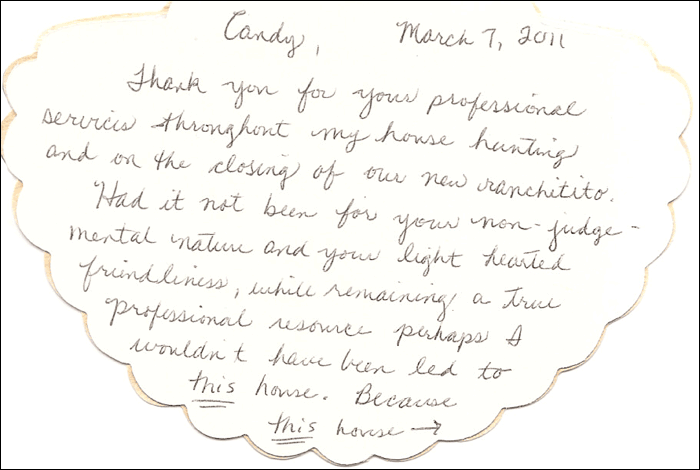 Candy, March 7, 2011
Thank you for your professional
servicis throughout my house hunting
and on the closing of our new ranchitito.
Had it not been for your non-judge-
mental nature and your light hearted
friendliness, while remaining a true
professional resource perhaps I
wouldn't have been led to
this house. Because
this house →